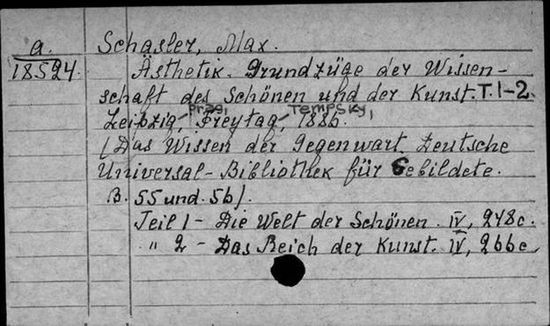 a. Schasler, Max.
18524. Ästhetik. Grundzüge der Wissen-
schaft des Schönen und der Kunst. T. 1-2.
Leipzig, Prag, Freytag, Tempsky, 1886.
(Das Wissen der Gegenwart. Deutsche
Universal-Bibliothek für Gebildete.
B. 55 und. 56).
Teil 1 - Die Welt der Schönen. IV, 248 c.
" 2 - Das Reich der Kunst. IV, 266 c.